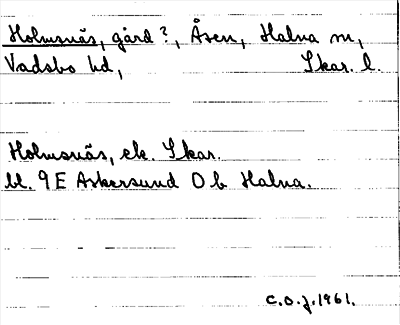 Holmsnäs, gård?, Åsen, Halna sn,
Vadsbo hd, Skar. l.
Holmsnäs, ek. Skar.
bl. 9E Askersund O b Halna.
C.O.J. 1961.